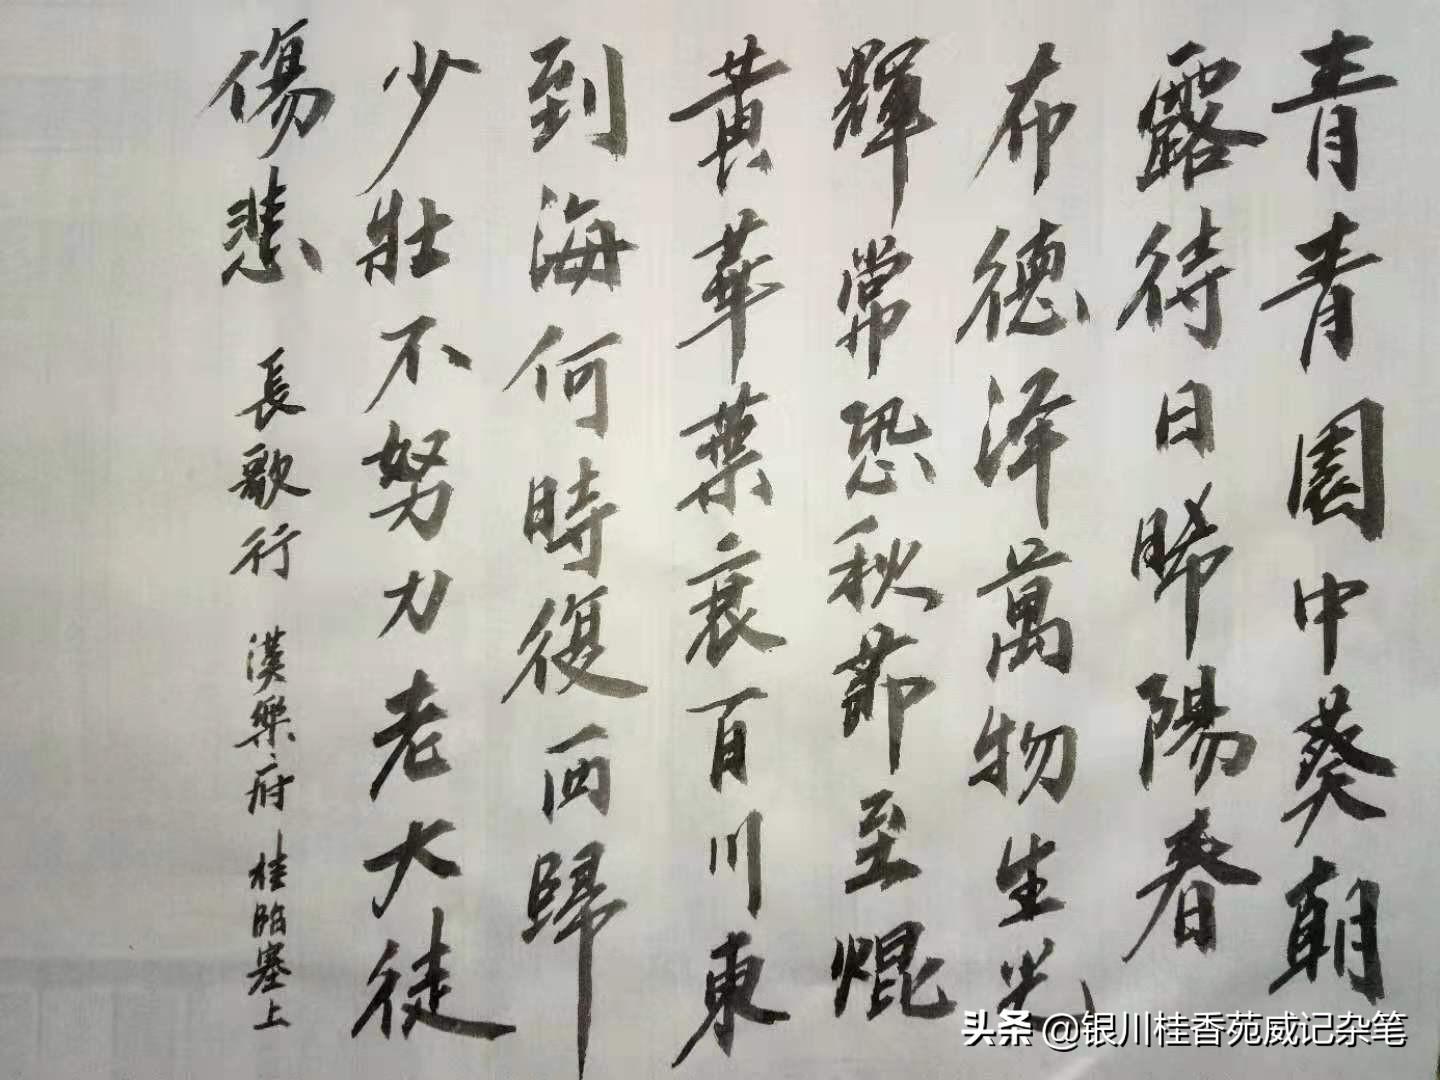 青青園中葵朝
露待日晞陽春
布德泽萬物生光
輝常恐秋節至焜
黃華葉衰百川東
到海何時復西歸
少壯不努力老大徒
傷悲 長歌行 漢樂府 桂臨塞上
头条 @银川桂香苑威记杂笔